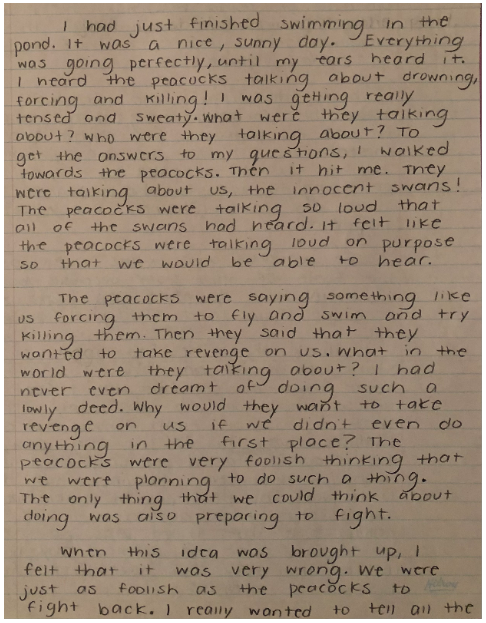 I had just finished swimming in the
pond. It was a nice, sunny day. Everything
was going perfectly, until my ears heard it.
I heard the peacocks talking about drowning,
forcing and killing! I was getting really
tensed and sweaty. What were they talking
about? Who were they talking about? To
get the answers to my questions, I walked
towards the peacocks. Then it hit me. They
were talking about us, the innocent swans!
The peacocks were talking so loud that
all of the swans had heard. It felt like
the peacocks were talking loud on purpose
so that we would be able to hear.
The peacocks were saying something like
us forcing them to fly and swim and try
killing them. Then they said that they
wanted to take revenge on us. What in the
world were they talking about? I had
never even dreamt of doing such a
lowly deed. Why would they want to take
revenge on us if we didn't even do
anything in the first place? The
peacocks were very foolish thinking that
we were planning to do such a thing.
The only thing that we could think about
doing was also preparing to fight.
When this idea was brought up, I
felt that it was very wrong. We were
just as foolish as the peacocks to
fight back. I really wanted to tell all the